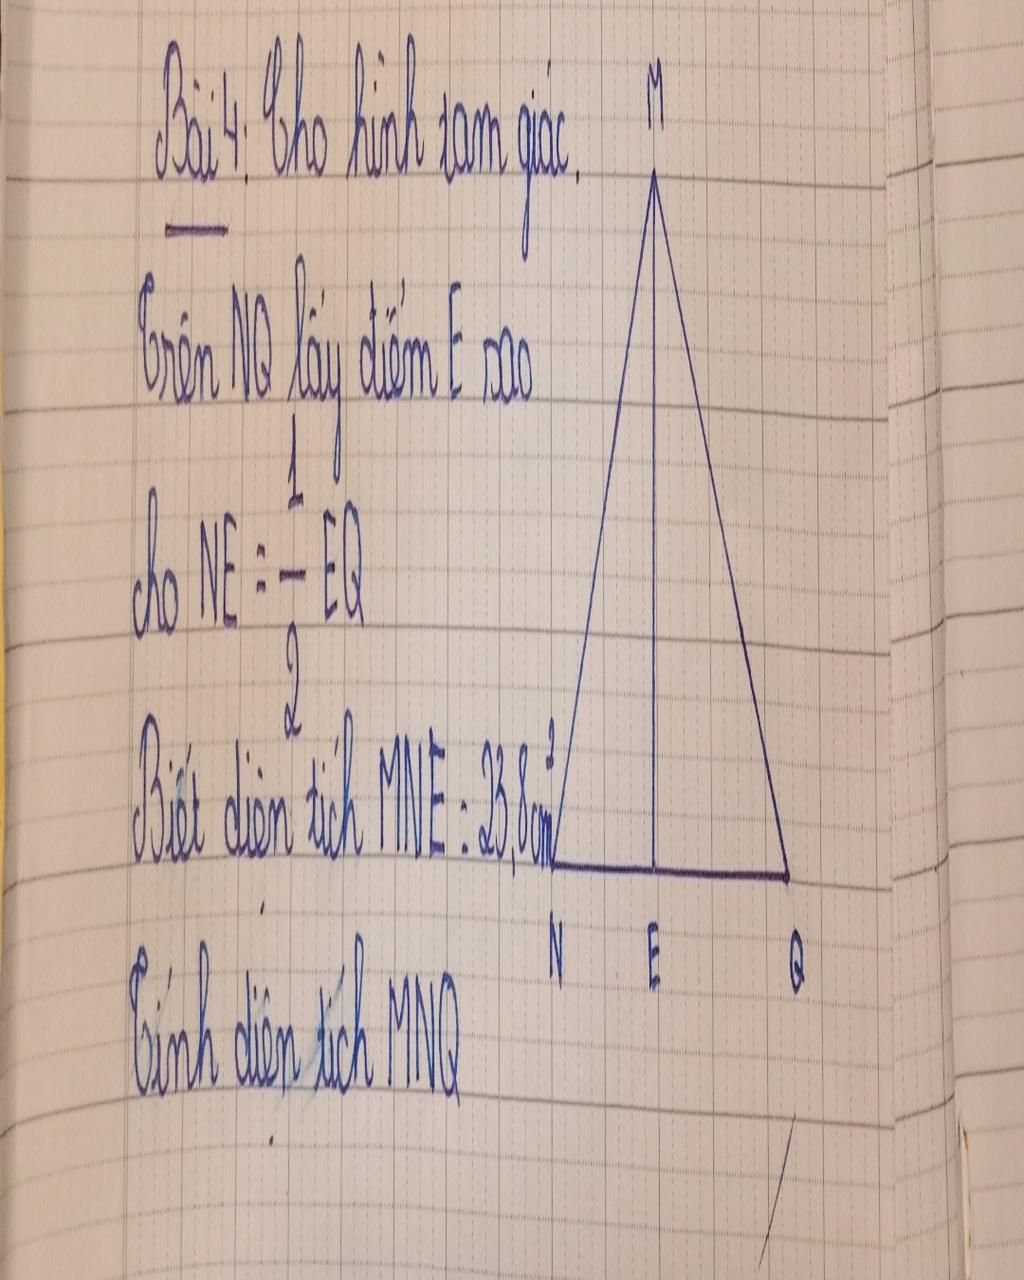 Bài 4: Cho hình tam giác.
Trên NQ lấy điểm E sao
cho NE = 1/2 EQ
Biết diện tích MNE : 23,8cm²
Tính diện tích MNQ
M
N E Q